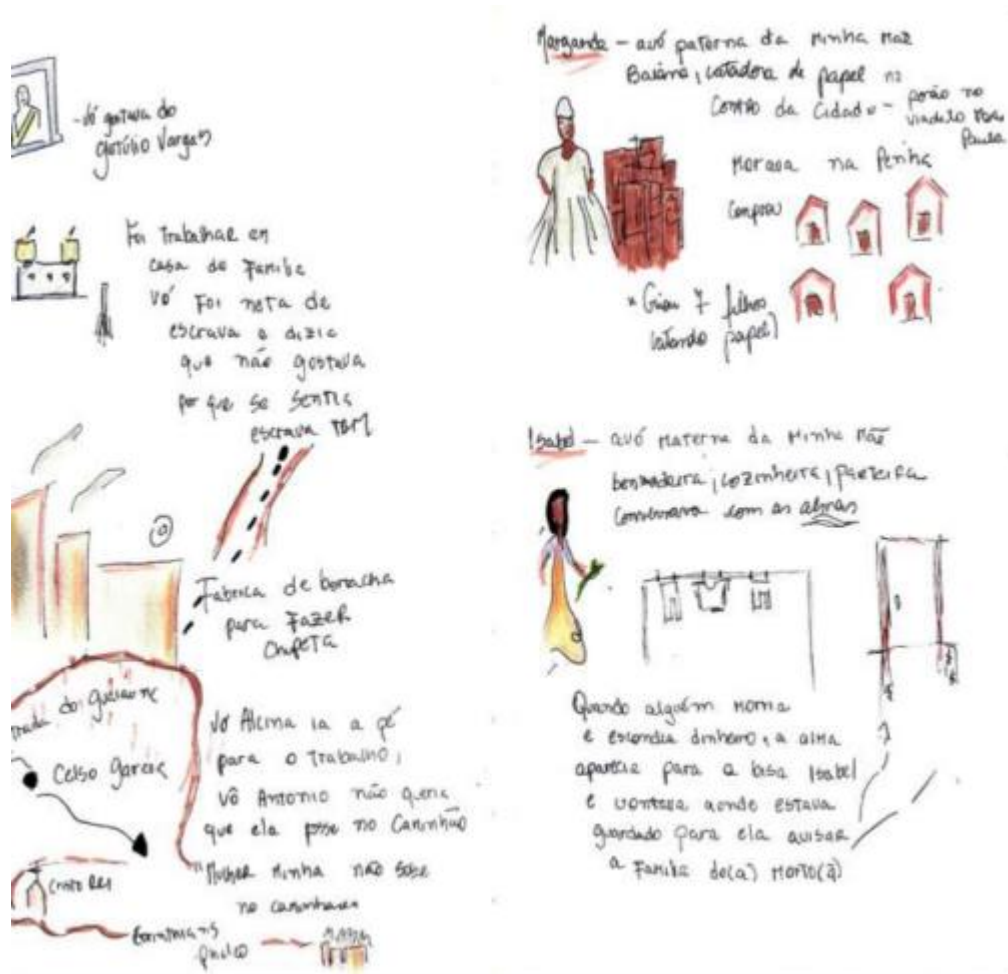 -Vó gostava do
Getúlio Vargas
Foi Trabalhar em
casa de Família
Vó Foi neta de
escrava e dizia
que não gostava
por que se sentia
escrava TBM
Fabrica de borracha
para Fazer
chupeta
Celso Garcia
Vó Alcina ia a pé
para o Trabalho,
Vô Antonio não queria
que ela fosse no Caminhão
"Mulher Minha não sobe
no caminhão
Cristo Rei
Corinthians
Morganda – avó paterna da Minha Mãe
Baiana, catadora de papel no
Centro da Cidade – porão no
viaduto
Paula
Morava na Penha
Comprou
* Criou 7 filhos
catando papel)
Isabel – avó Materna da Minha Mãe
benzedeira, cozinheira, parteira
Conversava com as almas
Quando alguém Morria
e escondia dinheiro, a alma
aparecia para a bisa Isabel
e contava aonde estava
guardado para ela avisar
a Família do(a) Morto(a)